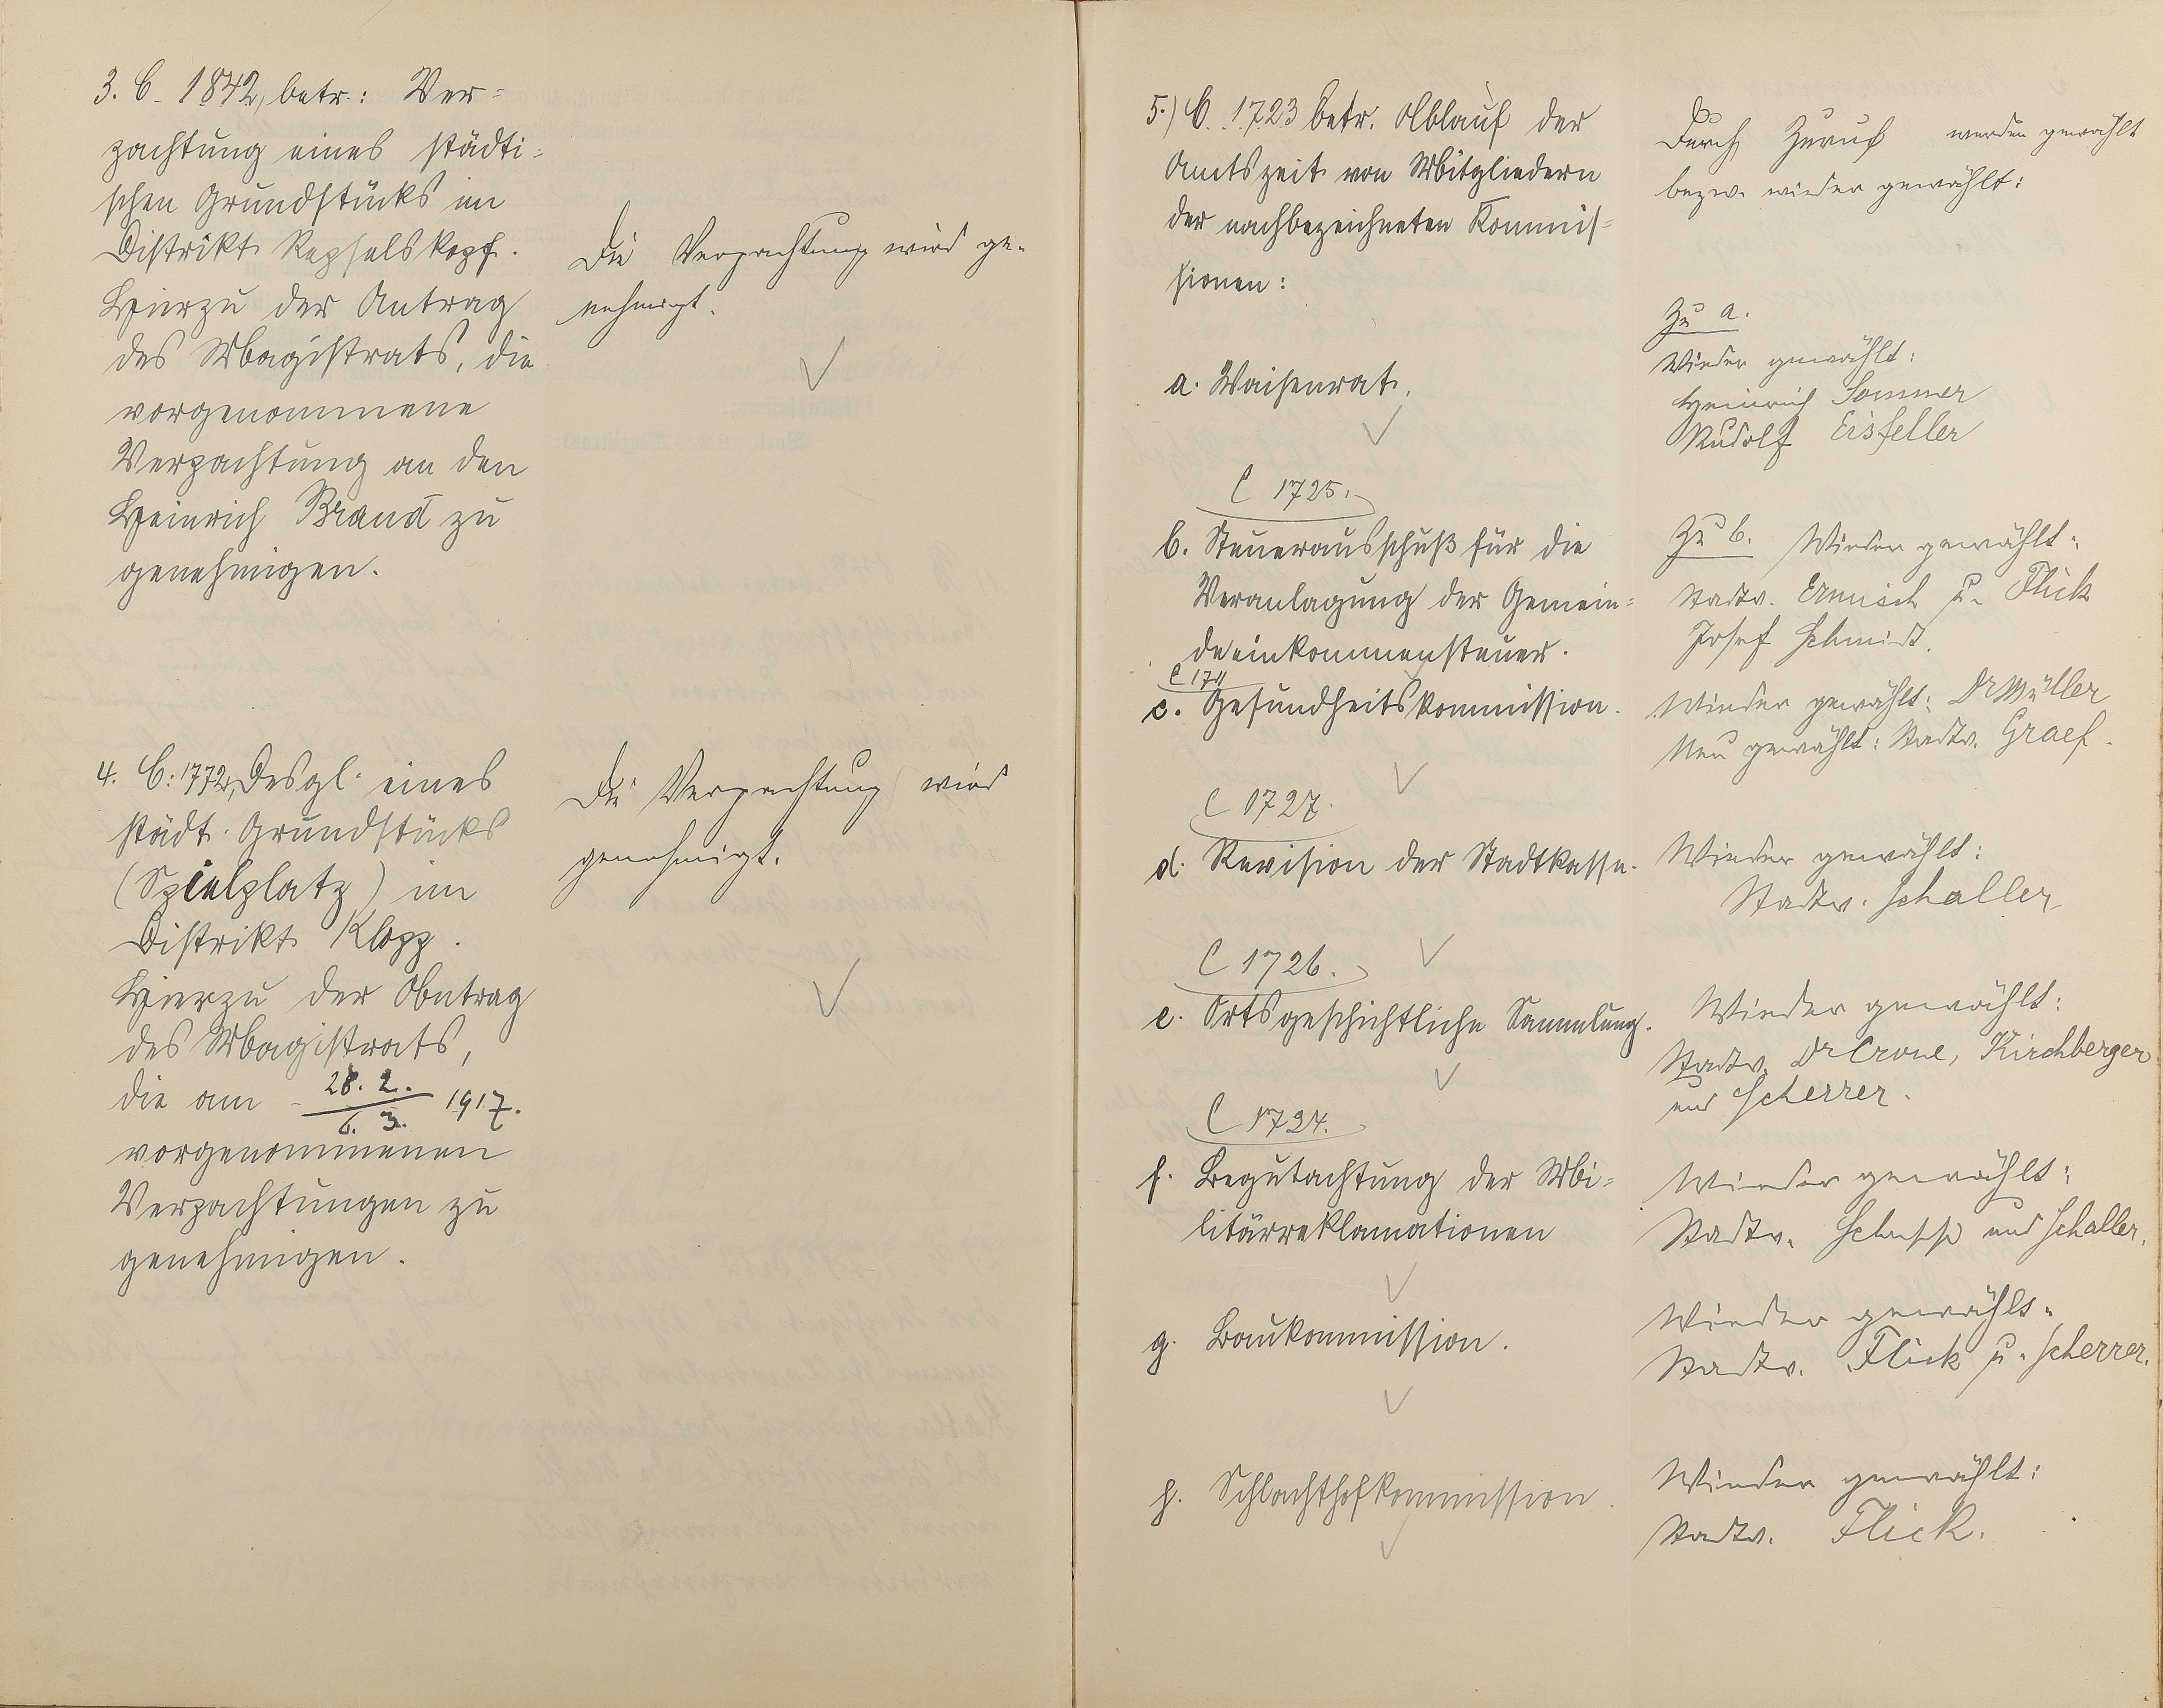 3. C. 1842, betr.: Ver=
pachtung eines städti=
schen Grundstücks im
Distrikt Repselskopf.
Hierzu der Antrag
des Magistrats, die
vorgenommene
Verpachtung an den
Heinrich Brand zu
genehmigen.
Die Verpachtung wird ge-
nehmigt.
4. C. 1772, Desgl. eines
städt. Grundstücks
(Spielplatz) im
Distrikt Klopp.
Hierzu der Antrag
des Magistrats,
die am 28. 2. / 6. 3. 1917.
vorgenommenen
Verpachtungen zu
genehmigen.
Die Verpachtung wird
genehmigt.
5.) C. 1723 betr. Ablauf der
Amtszeit von Mitgliedern
der nachbezeichneten Kommis=
sionen:
Durch Zuruf werden gewählt
bezw. wieder gewählt:
a. Waisenrat.
Zu a.
Wieder gewählt:
Heinrich Sommer
Rudolf Eisfeller
C 1725.
b. Steuerausschuß für die
Veranlagung der Gemein=
deeinkommensteuer.
Zu b. Wieder gewählt:
Stadtv. Ermisch u. Flick
Josef Schmidt.
C 1711
c. Gesundheitskommission.
Wieder gewählt: Dr Müller
Neu gewählt: Stadtv. Graef.
C 1727.
d. Revision der Stadtkasse.
Wieder gewählt:
Stadtv. Schaller
C 1726.
e. Ortsgeschichtliche Sammlung.
Wieder gewählt:
Stadtv. Dr Crone, Kirchberger
und Scherrer.
C 1724.
f. Begutachtung der Mi=
litärreklamationen
Wieder gewählt:
Stadtv. und Schaller.
g. Baukommission.
Wieder gewählt:
Stadtv. Flick u. Scherrer.
h. Schlachthofkommission.
Wieder gewählt:
Stadtv. Flick.